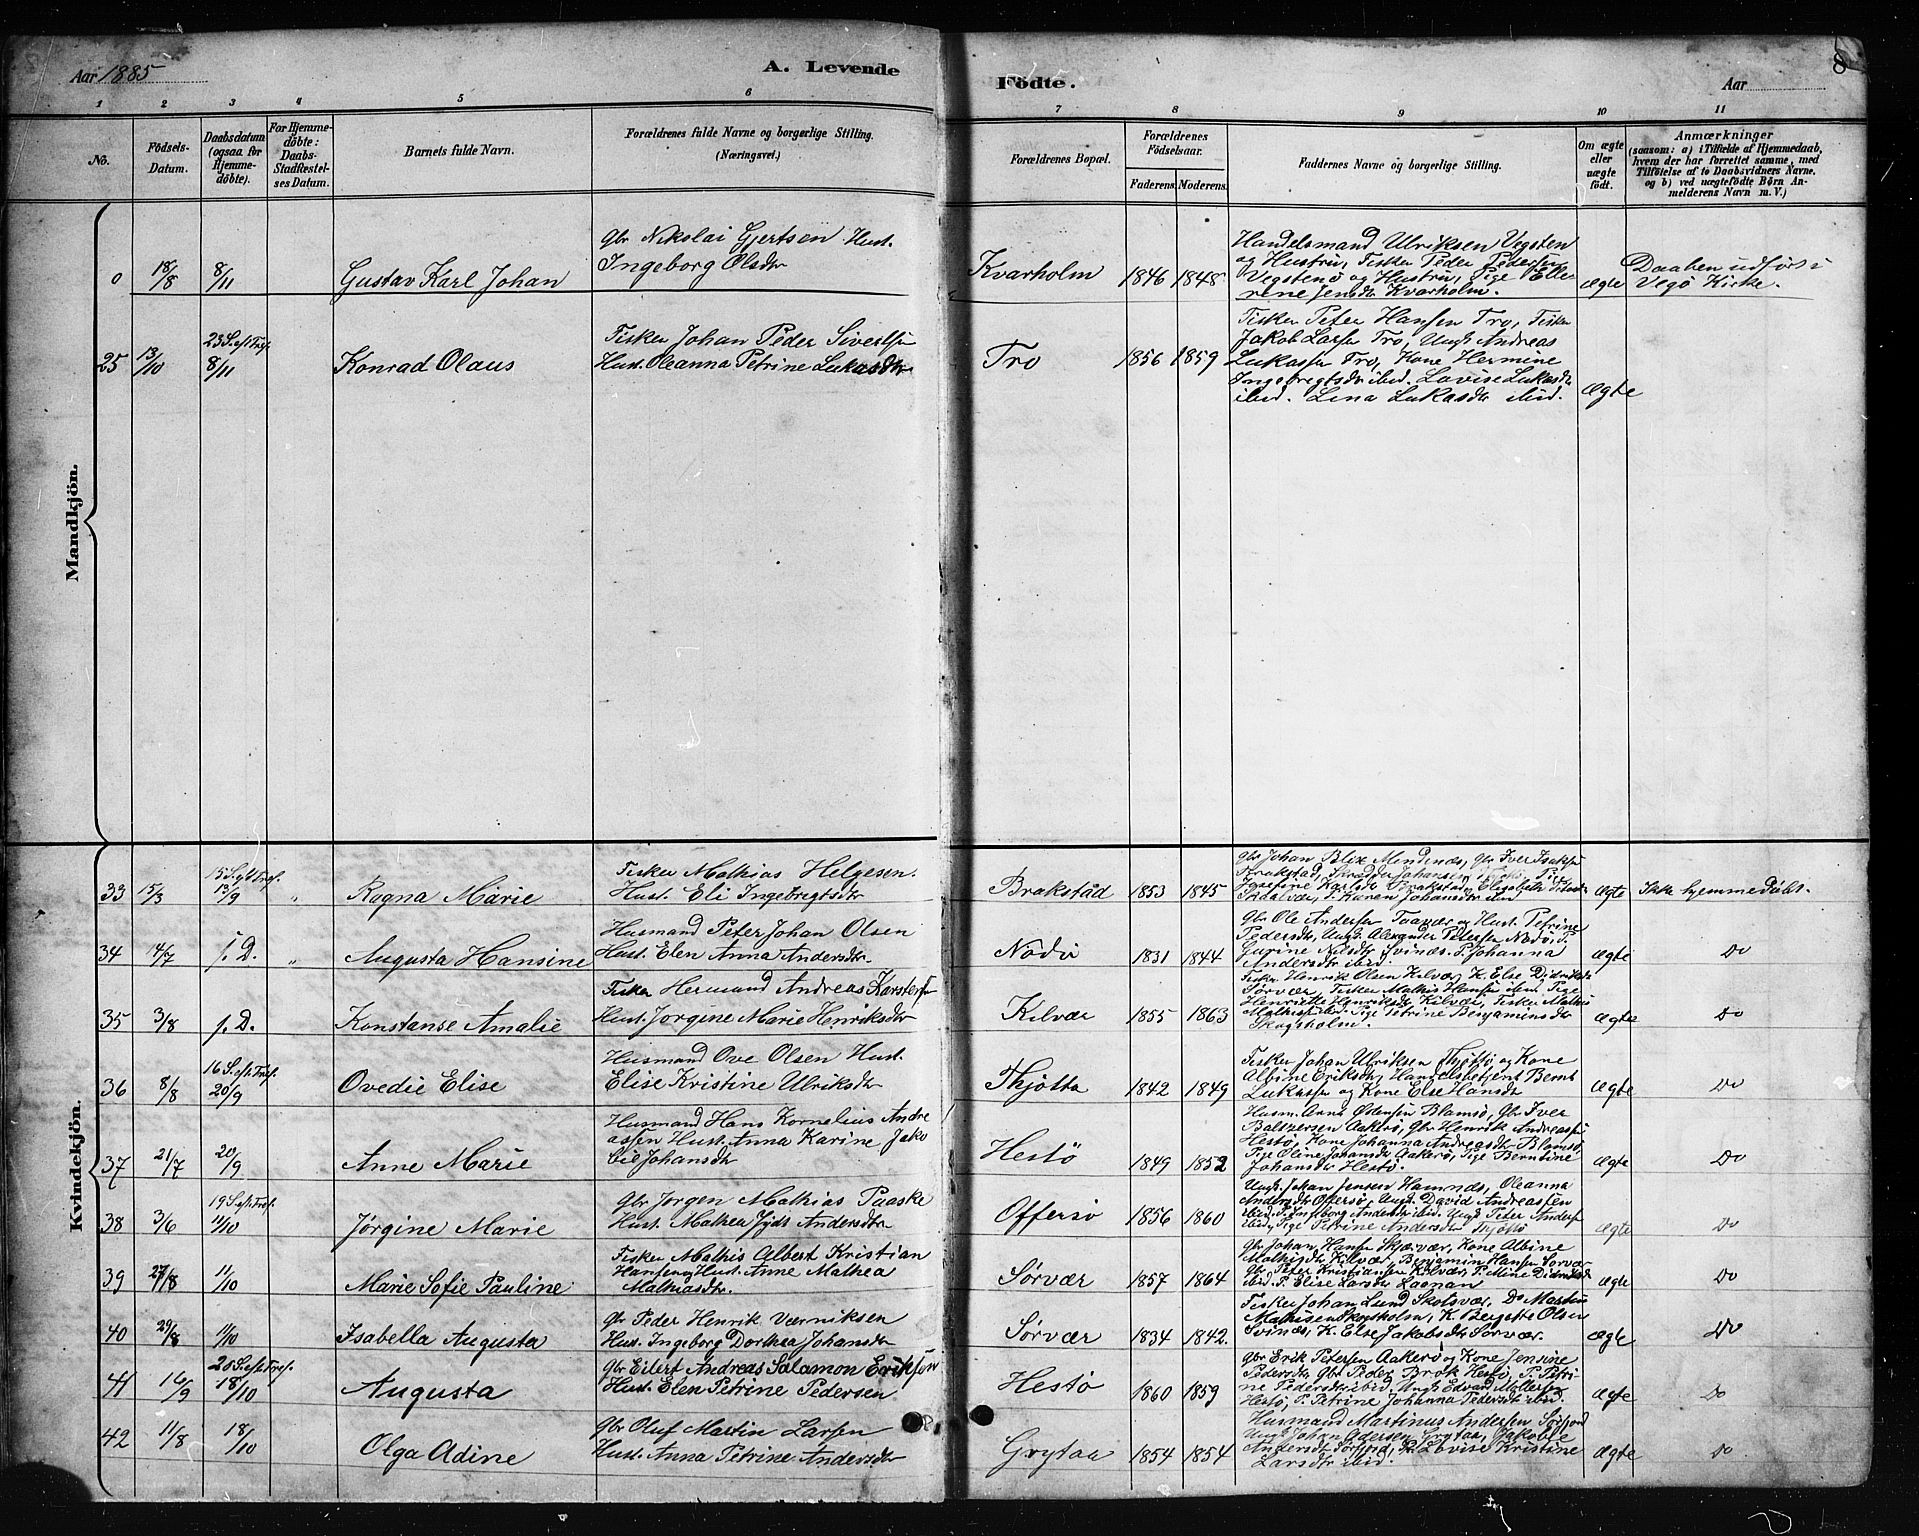 Aar 1885
A. Levende
Födte.
Aar
8
1 2 3 4 5 6 7 8 9 10 11
No.
Födsels-
Datum.
Daabsdatum
(ogsaa for
Hjemme-
döbte).
For Hjemme-
döbte:
Daabs-
Stadfæstel-
ses Datum.
Barnets fulde Navn.
Forældrenes fulde Navne og borgerlige Stilling.
(Næringsvei.)
Forældrenes Bopæl.
Forældrenes
Födselsaar.
Faderens. Moderens.
Faddernes Navne og borgerlige Stilling.
Om ægte
eller
uægte
födt.
Anmærkninger
(saasom: a) i Tilfælde af Hjemmedaab,
hvem der har forrettet samme, med
Tilföielse af to Daabsvidners Navne,
og b) ved uægtefödte Börn An-
melderens Navn m. V.)
Mandkjön.
0 18/8 8/11 Gustav Karl Johan
Gbr Nikolai Gjertsen Hust.
Ingeborg Olsdtr
Kvarholm 1846 1848
Handelsmand Ulriksen Vegsten
og Hustru, Fisker Peder Pedersen
Vegstenø og Hustru, Pige Elle
rine Jensdtr Kvarholm.
Ægte
Daaben udført i
Vegø Kirke.
25 13/10 23 S. eft Tref. 8/11 Konrad Olaus
Fisker Johan Peder Sivertsen
Hust. Oleanna Petrine Lukasdtr
Tro 1856 1859
Fisker Peter Hansen Tro, Fisker
Jakob Larsen Tro, Ungk Andreas
Lukassen Tro, Kone Hermine
Ingebregtsdtr ibid. Lovise Lukasdtr
ibid. Lina Lukasdtr ibid.
Ægte
Kvindekjön.
33 15/3 15 S. eft Tref. 13/9 " Ragna Marie
Fisker Mathias Helgesen
Hust. Eli Ingebregtsdtr
Brakstad 1853 1845
Gbr Johan Blix Mindenæs, Gbr Iver Isaksen
Josefine Karlsdtr Brakstad, Elisabeth
Skaalvær, P. Karen Johansdtr ibid
Ægte Ikke hjemmedøbt.
34 14/7 s. D. " Augusta Hansine
Husmand Peter Johan Olsen
Hust. Elen Anna Andersdtr
Nødø 1831 1844
Gbr Ole Andersen Taavær og Hust. Petrine
Pedersdtr, Ungk. Alexander Petersen Nødø, P.
Gurine Nilsdtr Svinæs. P. Johanna
Andersdtr ibid.
Ægte Do
35 3/8 s. D. Konstanse Amalie
Fisker Hermand Andreas Karstensen
Hust. Jørgine Marie Henriksdtr
Kilvær 1855 1863
Fisker Henrik Olsen Kilvær, K. Else Didriksdtr
Sørvær, Fisker Mathis Hansen ibid. Pige
Henriette Henriksdtr Kilvær, Fisker Mathis
Mathisen ibid. Pige Petrine Benjaminsdtr
Skogsholm.
Ægte Do
36 8/8 16 S. eft Tref. 20/9 Ovedie Elise
Husmand Ove Olsen Hust.
Elise Kristine Ulriksdtr
Thjøtta 1842 1849
Fisker Johan Ulriksen Thjøttø og Kone
Albine Eriksdtr, Handelsbetjent Bernt
Lukassen og Kone Else Hansdtr
Ægte Do
37 21/7 20/9 Anne Marie
Husmand Hans Kornelius Andre
assen Hust. Anna Karine Jako
bie Johansdtr
Hestø 1849 1852
Husm. Arnt Odensen Blamsø, Gbr Iver
Baltzersen Aakerø, Gbr Henrik Andreassen
Hestø, Kone Johanna Andreasdtr Blamsø,
Pige Oline Johansdtr Aakerø, Pige Berntine
Johansdtr Hestø.
Ægte Do
38 3/6 19 S. eft Tref. 11/10 Jørgine Marie
Gbr Jørgen Mathias Paaske
Hust. Mathea Andersdtr
Offersø 1856 1860
Ungk. Johan Jensen Hamnæs, Oleanna
Andersdtr Offersø, Ungk. David Andreassen
ibid. P. Ingeborg Andersdtr ibid. Ungk Peter Andersen
ibid, Pige Petrine Andersdtr Thjøttø
Ægte Do
39 27/8 11/10 Marie Sofie Pauline
Fisker Mathis Albert Kristian
Hansen og Hust. Anne Mathea
Mathiasdtr.
Sørvær 1857 1864
Gbr Johan Hansen Skjærvær, Kone Albine
Mathisdtr Kilvær, Benjamin Hansen Sørvær
Gbr Peter Kristiansen Kilvær, P. Petrine Didriksdtr
ibid. P. Elise Larsdtr Laanan
Ægte Do
40 29/8 11/10 Isabella Augusta
Gbr Peder Henrik Værniksen
Hust. Ingeborg Dorthea Johansdtr
Sørvær 1834 1842
Fisker Johan Lund Skotsvær, Do Martin
Mathisen Skogsholm, K. Bergette Olsen
Svinæs, K. Else Jakobsdtr Sørvær.
Ægte Do
41 16/9 20 S. eft Tref. 18/10 Augusta
Gbr Eilert Andreas Salamon Eriksen
Hust. Elen Petrine Pedersen
Hestø 1860 1859
Gbr Erik Petersen Aakerø og Kone Jensine
Pedersdtr, Gbr Peder Brok Hestø, P. Petri
ne Pedersdtr ibid, Ungk Edvard Møllersen
Hestø, P. Petrine Johanna Pedersdtr ibid.
Ægte Do
42 11/8 18/10 Olga Adine
Gbr Oluf Martin Larsen
Hust. Anna Petrine Andersdtr
Grytaa 1854 1854
Husmand Martinus Andersen Sørfjord
Ungk Johan Adersen Grytaa, Jakobie
Andersdtr Sørfjord, P. Lovise Kristine
Larsdtr ibid.
Ægte Do